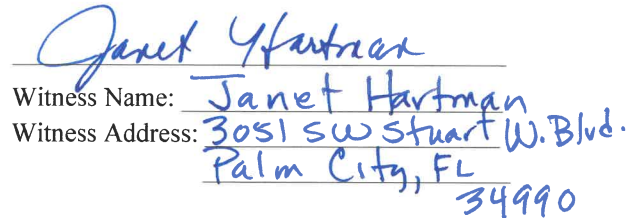 Janet Hartman
Witness Name: Janet Hartman
Witness Address: 3051 SW Stuart W. Blvd.
Palm City, FL
34990